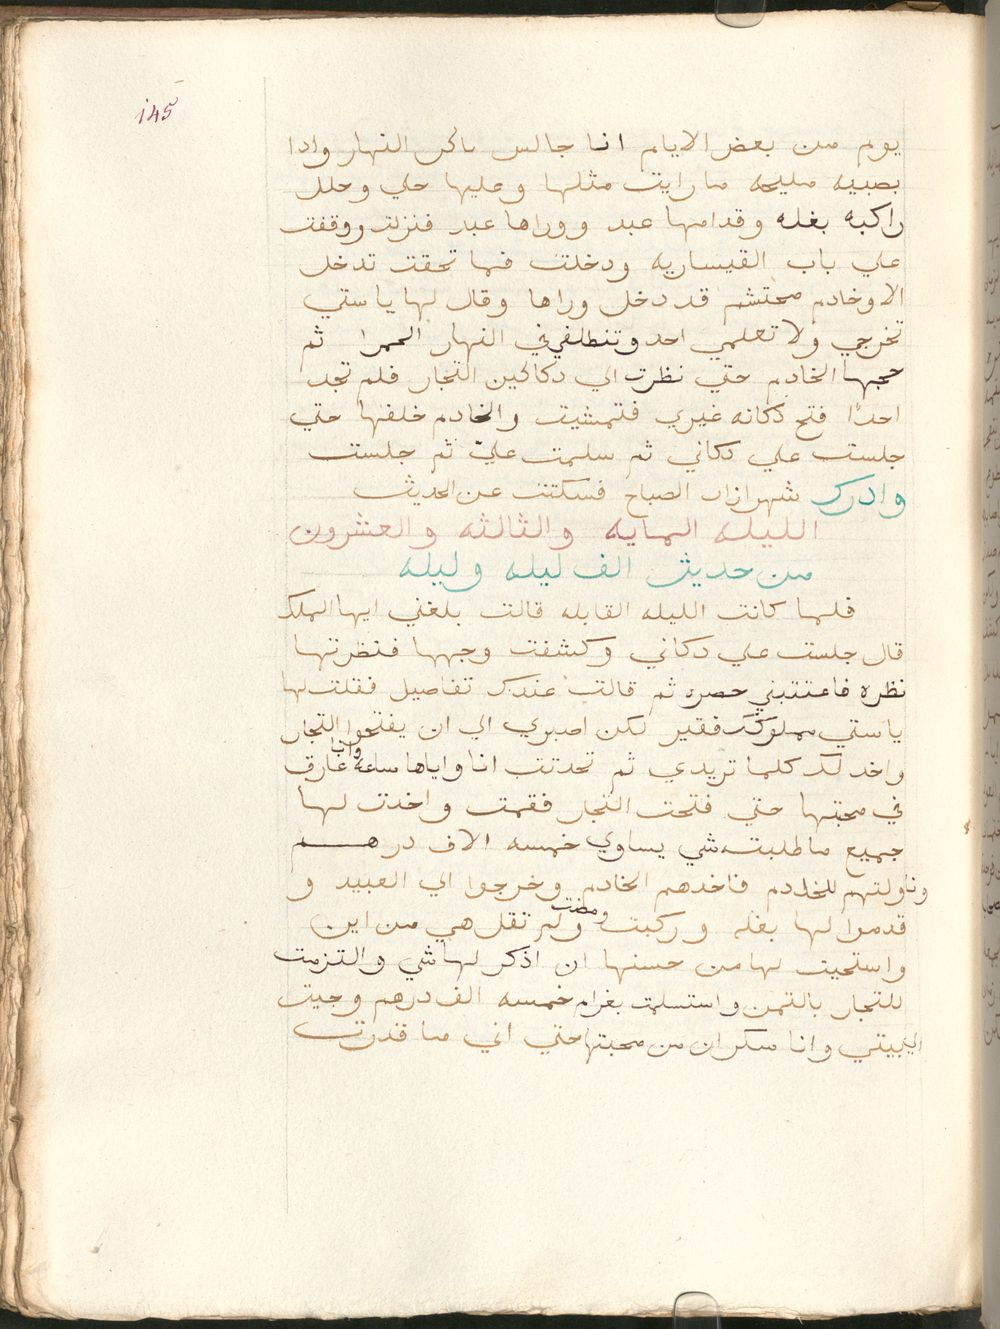 145
يوم من بعض الايام انا جالس باكر النهار وادا
بصبيه مليحه ما رايت مثلها وعليها حلي وحلل
راكبه بغله وقدامها عبد ووراها عبد فنزلت ووقفت
علي باب القيساريه ودخلت فما تحققت تدخل
الا وخادم محتشم قد دخل وراها وقال لها يا ستي
تخرجي ولا تعلمي احد وتنطلقي في النهار الحمرا ثم
حجبها الخادم حتي نظرت الي دكاكين التجار فلم تجد
احدًا فتح دكانه غيري فتمشيت والخادم خلفها حتي
جلست علي دكاني ثم سلمت عليّ ثم جلست
وادرك شهرازاد الصباح فسكتت عن الحديث
الليله المايه والثالثه والعشرون
من حديث الف ليله وليله
فلما كانت الليله القابله قالت بلغني ايها الملك
قال جلست علي دكاني وكشفت وجهها فنظرتها
نظره فاعقبتني حصره ثم قالت عندك تفاصيل فقلت لها
يا ستي مملوكك فقير لكن اصبري الي ان يفتحوا التجار
واخد لك كلما تريدي ثم تحدتت انا واياها ساعه وانا غارق
في محبتها حتي فتحت التجار فقمت واخدت لها
جميع ما طلبته شي يساوي خمسه الاف درهم
وناولتهم للخادم فاخدهم الخادم وخرجوا الي العبيد و
قدموا لها بغله وركبت ومضت ولم تقل هي من اين
واستحيت لها من حسنها ان اذكر لها شي والتزمت
للتجار بالتمن واستسلمت بغرام خمسه الف درهم وجيت
الي بيتي وانا سكران من محبتها حتي اني ما قدرت